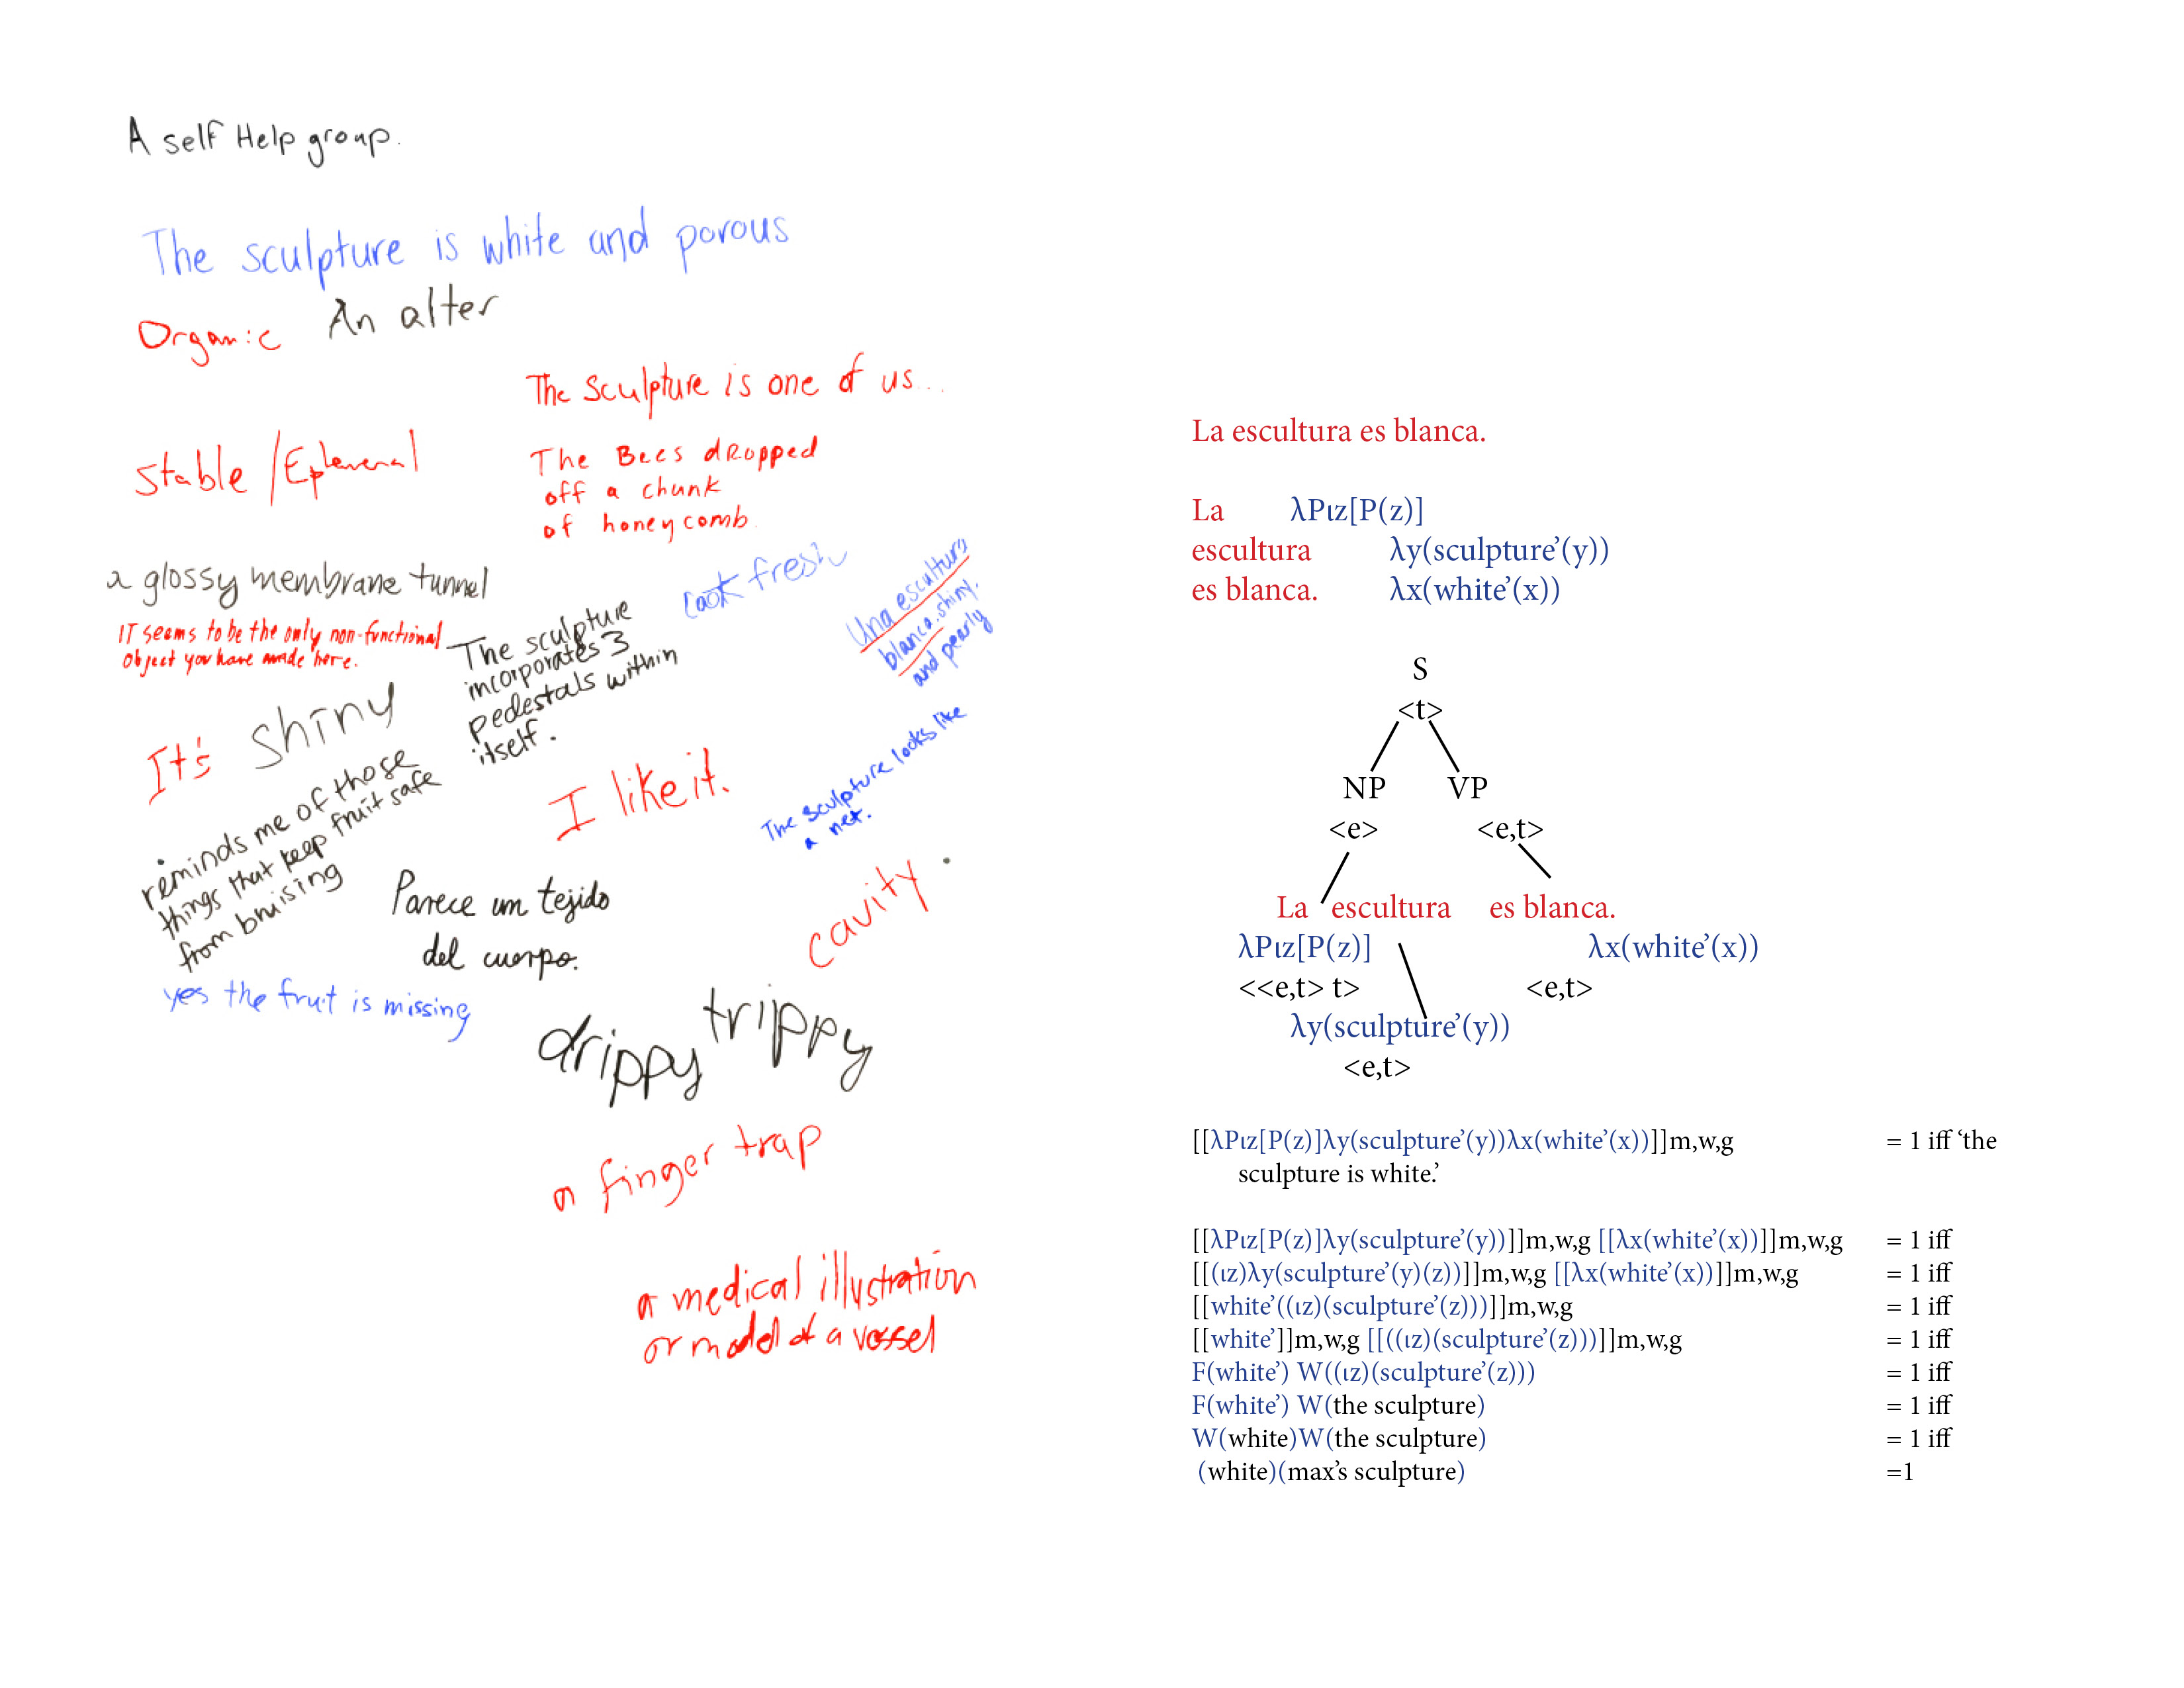 A self Help group.
The sculpture is white and porous
Organic An alter
The Sculpture is one of us...
Stable /
The Bees dropped
off a chunk
of honeycomb.
a glossy membrane tunnel
IT seems to be the only non-functional
object you have made here.
The sculpture
incorporates 3
pedestals within
itself.
look fresh
Una escultura
blanca. shiny.
and pearly
It's shiny
I like it.
The sculpture looks like
a net.
reminds me of those
things that keep fruit safe
from bruising
Parece un tejido
del cuerpo.
cavity.
yes the fruit is missing
drippy trippy
a finger trap
a medical illustration
or model of a vessel
La escultura es blanca.
La λPιz[P(z)]
escultura λy(sculpture’(y))
es blanca. λx(white’(x))
S
<t>
NP VP
<e> <e,t>
La escultura es blanca.
λPιz[P(z)] λx(white’(x))
<<e,t> t> <e,t>
λy(sculpture’(y))
<e,t>
[[λPιz[P(z)]λy(sculpture’(y))λx(white’(x))]]m,w,g = 1 iff ‘the
sculpture is white.’
[[λPιz[P(z)]λy(sculpture’(y))]]m,w,g [[λx(white’(x))]]m,w,g = 1 iff
[[(ιz)λy(sculpture’(y)(z))]]m,w,g [[λx(white’(x))]]m,w,g = 1 iff
[[white’((ιz)(sculpture’(z)))]]m,w,g = 1 iff
[[white’]]m,w,g [[((ιz)(sculpture’(z)))]]m,w,g = 1 iff
F(white’) W((ιz)(sculpture’(z))) = 1 iff
F(white’) W(the sculpture) = 1 iff
W(white)W(the sculpture) = 1 iff
(white)(max’s sculpture) =1